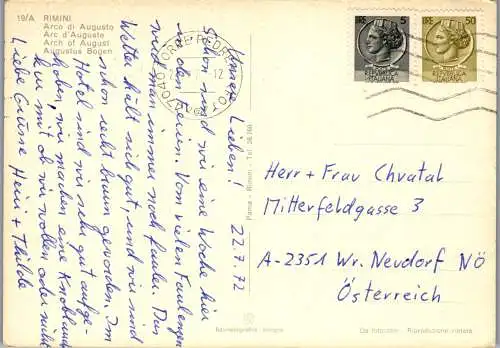 19/A RIMINI
Arco di Augusto
Arc d'Auguste
Arch of August
Augustus Bogen
22.7.72
Unsere Lieben!
Schon sind wir eine Woche hier
in den Ferien. Vom vielen Faulenzen
wird man immer noch fauler. Das
Wetter hält sich gut, und wir sind
schon recht braun geworden. Im
Hotel sind wir sehr gut aufge-
hoben, wir machen eine Knoblauch
kur mit ob wir wollen oder nicht
Liebe Grüsse Heini + Thilde
LIRE 5
REPUBBLICA
ITALIANA
LIRE 50
REPUBBLICA
ITALIANA
Herr + Frau Chvatal
Mitterfeldgasse 3
A-2351 Wr. Neudorf NÖ
Österreich
Rimini - Tel.
Da fotocolor - Riproduzione vietata